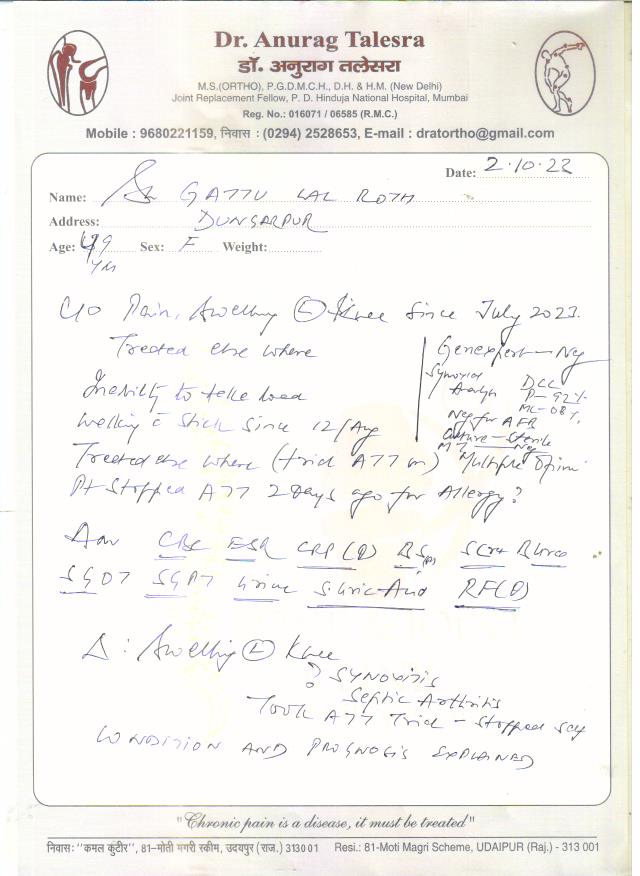 Dr. Anurag Talesra
डॉ. अनुराग तलेसरा
M.S.(ORTHO), P.G.D.M.C.H., D.H. & H.M. (New Delhi)
Joint Replacement Fellow, P. D. Hinduja National Hospital, Mumbai
Reg. No.: 016071 / 06585 (R.M.C.)
Mobile : 9680221159, निवास : (0294) 2528653, E-mail : dratortho@gmail.com
Date: 2.10.23
Name: GATTU LAL ROTH
Address: DUNGARPUR
Age: 49 Sex: F Weight:
Yrs
C/O Pain, Swelling Ⓛ Knee since July 2023.
Treated elsewhere
Genexpert - Neg
Synovial
Analysis DLC
P - 92%
Inability to take load
Neg for AFB
Walking c̄ Stick since 12/Aug
Culture - Sterile
Treated elsewhere (tried ATT) Multiple Opinion
Pt Stopped ATT 2 Days ago for Allergy?
Adv CBC ESR CRP(Q) BS S. Creat B. Urea
SGOT SGPT Urine S. Uric Acid RF(Q)
Δ : Swelling Ⓛ Knee
? SYNOVITIS
Septic Arthritis
Took ATT Trial - Stopped self
CONDITION AND PROGNOSIS EXPLAINED
"Chronic pain is a disease, it must be treated"
निवास: "कमल कुटीर", 81-मोती मगरी स्कीम, उदयपुर (राज.) 313001 Resi.: 81-Moti Magri Scheme, UDAIPUR (Raj.) - 313 001